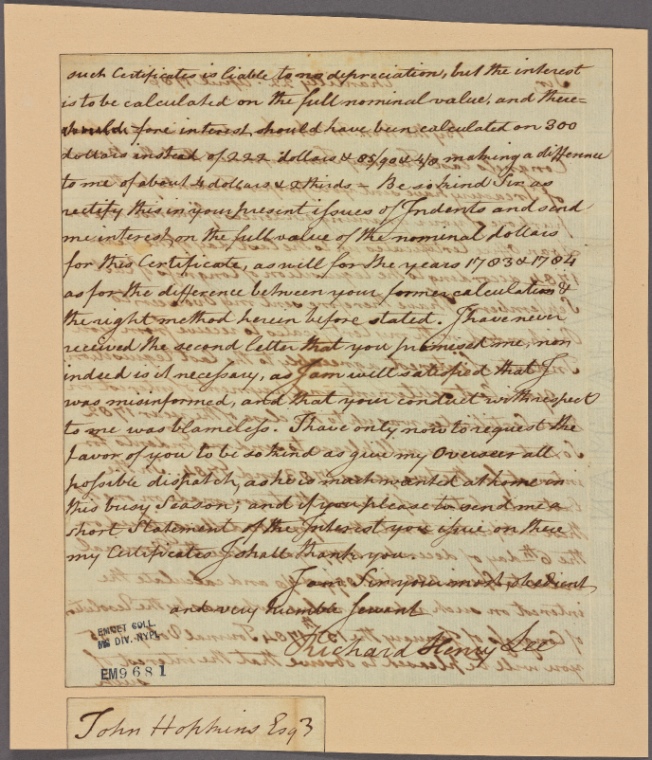 such Certificates is liable to no depreciation, but the interest
is to be calculated on the full nominal value, and there=
fore interest should have been calculated on 300
dollars instead of 222 dollars & 85/90 & 4/8 making a difference
to me of about 4 dollars & 2 thirds - Be so kind Sir as
rectify this in your present issues of Indents and send
me interest on the full value of the nominal dollars
for this Certificate, as well for the years 1783 & 1784
as for the difference between your former calculation &
the right method herein before stated. I have never
received the second letter that you promised me, nor
indeed is it necessary, as I am well satisfied that I
was misinformed, and that your conduct with respect
to me was blameless. I have only now to request the
favor of you to be so kind as give my Overseer all
possible dispatch, as he is much wanted at home in
this busy Season; and if you please to send me a
short Statement of the Interest you issue on these
my Certificates I shall thank you
I am Sir your most obedient
and very humble Servant
Richard Henry Lee
EMMET COLL.
MS DIV. NYPL.
EM9681
John Hopkins Esqr